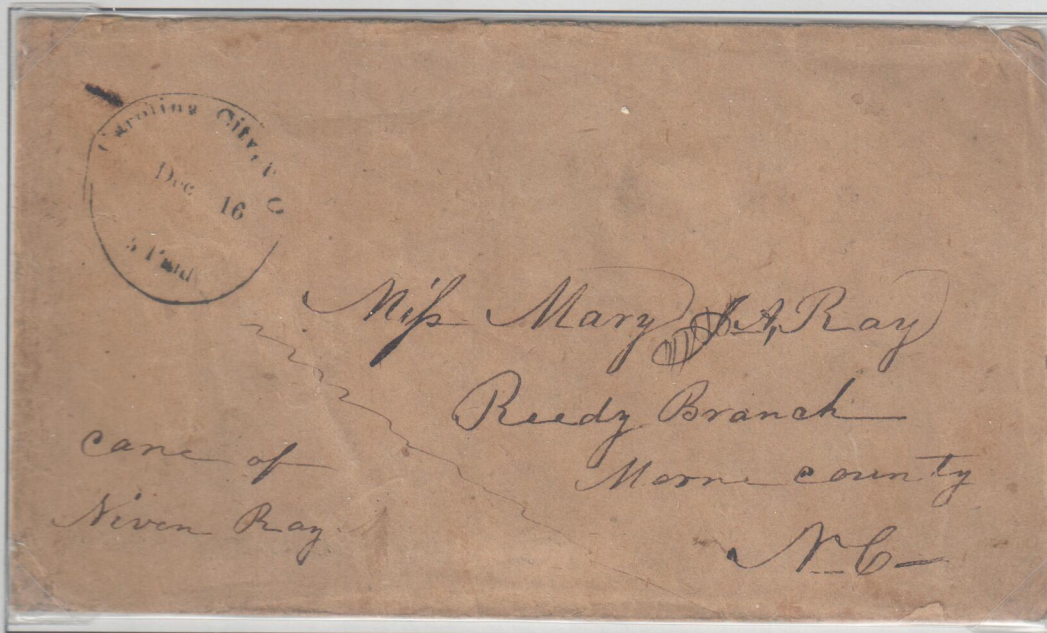 Carolina City N C
Dec 16
5 Paid
Miss Mary J. A, Ray
Reedy Branch
Moore county
N. C
care of
Niven Ray